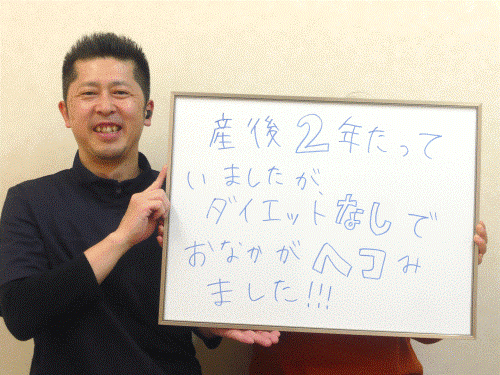 産後2年たって
いましたが、
ダイエットなしで
おなかがヘコみ
ました!!!